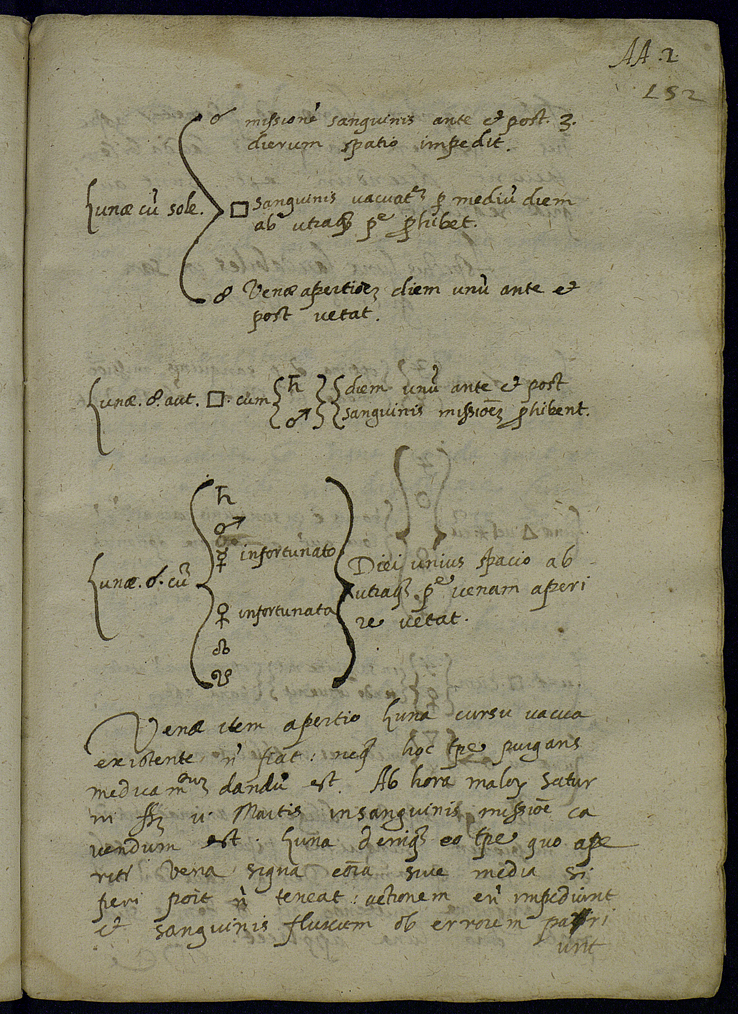 AA. 2.
152
☌ missionē sanguinis ante et post. 3.
dierum spatio impedit.
Lunæ cū sole.
□ sanguinis vacuatōz ꝑ mediū diem
ab utraqꝫ ꝑte ꝓhibet.
☍ Venæ apertioēz diem unū ante et
post vetat.
Lunæ. ☍. aut. □. cum { ♄ } { diem unū ante et post
♂ sanguinis missioēz ꝓhibent.
♄
♂
☿ infortunato
Lunæ. ☌. cū
Diei unius spacio ab
utraqꝫ ꝑte venam aperi
♀ infortunata
re vetat.
☊
☋
Venæ item apertio Luna cursu vacua
existente n̄ fiat: neqꝫ hoc tꝑe purgans
medicam dandū est. Ab horā maloꝝ Satur
ni Martis in sanguinis missioē ca
vendum est. Luna deniqꝫ eo tꝑe quo ape
riri vena signa eōia sive media si
fieri poīt n̄ teneat: actionem eī impediunt
et sanguinis fluxum ob errorem pari
unt